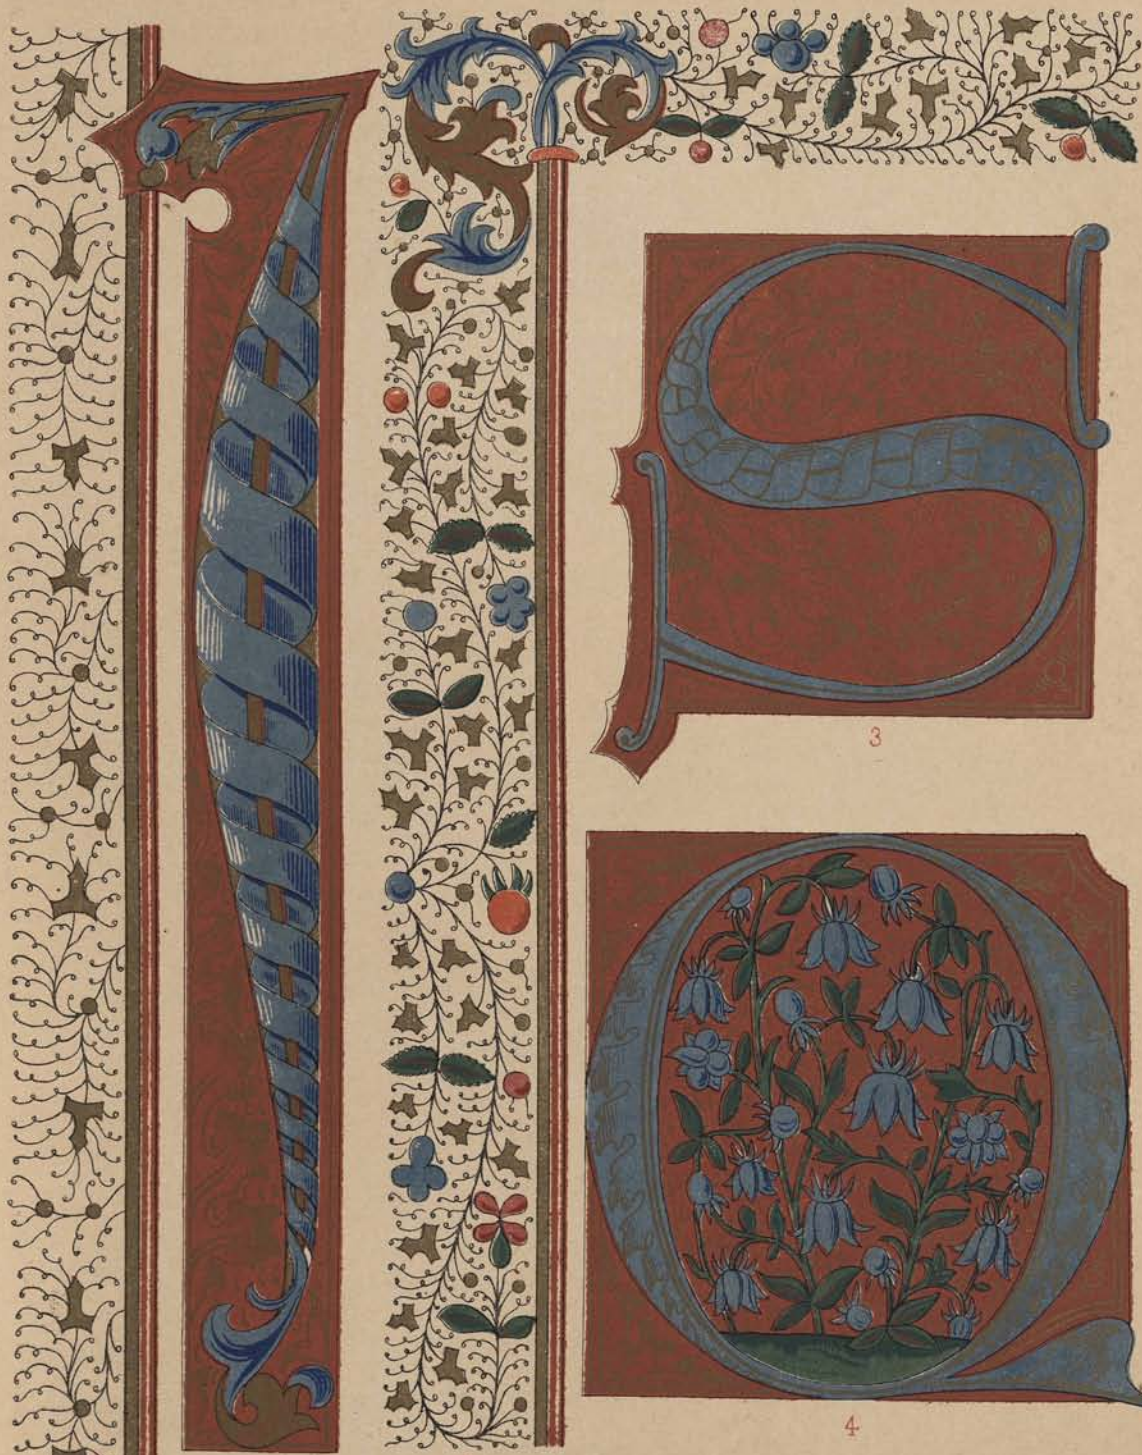 I
S
3
Q
4